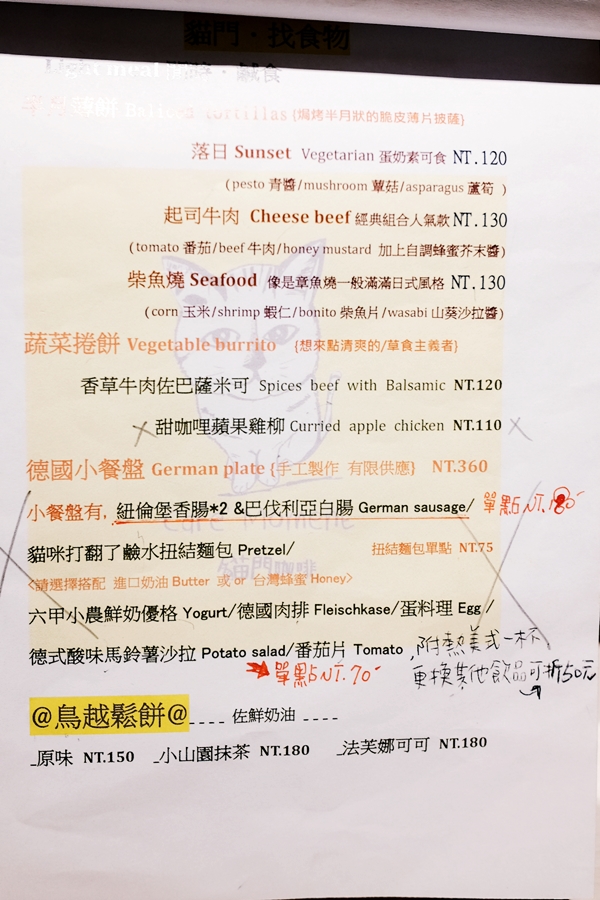 貓門·找食物
鹹食
薄餅 tortillas {焗烤半月狀的脆皮薄片披薩}
落日 Sunset Vegetarian 蛋奶素可食 NT.120
(pesto 青醬/mushroom 蕈菇/asparagus 蘆筍 )
起司牛肉 Cheese beef 經典組合人氣款 NT.130
(tomato 番茄/beef 牛肉/honey mustard 加上自調蜂蜜芥末醬)
柴魚燒 Seafood 像是章魚燒一般滿滿日式風格 NT.130
(corn 玉米/shrimp 蝦仁/bonito 柴魚片/wasabi 山葵沙拉醬)
蔬菜捲餅 Vegetable burrito {想來點清爽的/草食主義者}
香草牛肉佐巴薩米可 Spices beef with Balsamic NT.120
甜咖哩蘋果雞柳 Curried apple chicken NT.110
德國小餐盤 German plate {手工製作 有限供應} NT.360
小餐盤有, 紐倫堡香腸*2 &巴伐利亞白腸 German sausage/ 單點 NT.180-
貓咪打翻了鹼水扭結麵包 Pretzel/ 扭結麵包單點 NT.75
<請選擇搭配 進口奶油 Butter 或 or 台灣蜂蜜 Honey>
貓門咖啡
六甲小農鮮奶優格 Yogurt/德國肉排 Fleischkase/蛋料理 Egg /
德式酸味馬鈴薯沙拉 Potato salad/番茄片 Tomato ,附熱美式一杯
單點 NT.70- 更換其他飲品可折50元
@鳥越鬆餅@ ---- 佐鮮奶油 ----
_原味 NT.150 _小山園抹茶 NT.180 _法芙娜可可 NT.180